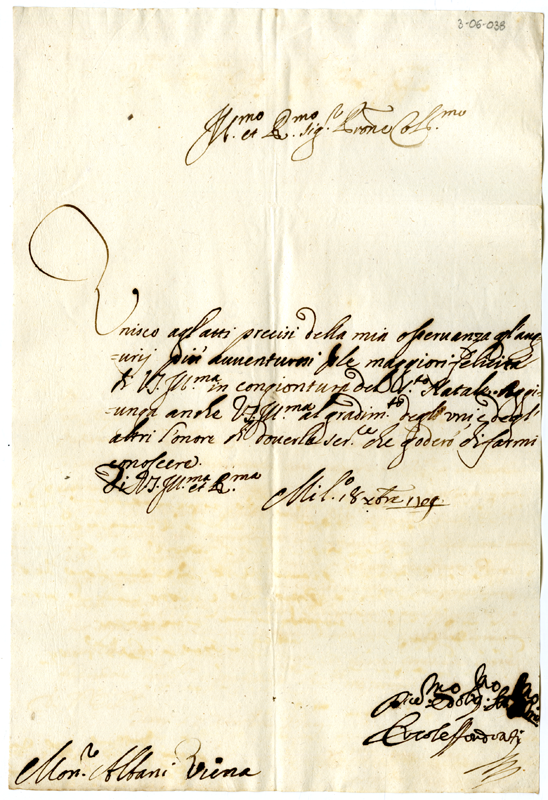 3-06-038
Ill.mo et R.mo Sig.r Prone Coll.mo
Unisco agl'atti precisi della mia osseruanza gl'aug=
=urij più auuenturosi p le maggiori felicità
di V.S. Ill.ma in congiontura del S.to Natale. Aggi=
=unga anche V.S. Ill.ma al gradim.to degl'uni, e degl'
altri l'onore di douerla ser.e che goderò di farmi
conoscere.
Di V.S. Ill.ma et R.ma
Mil.o 18 xbre
Mon.r Albani Viena